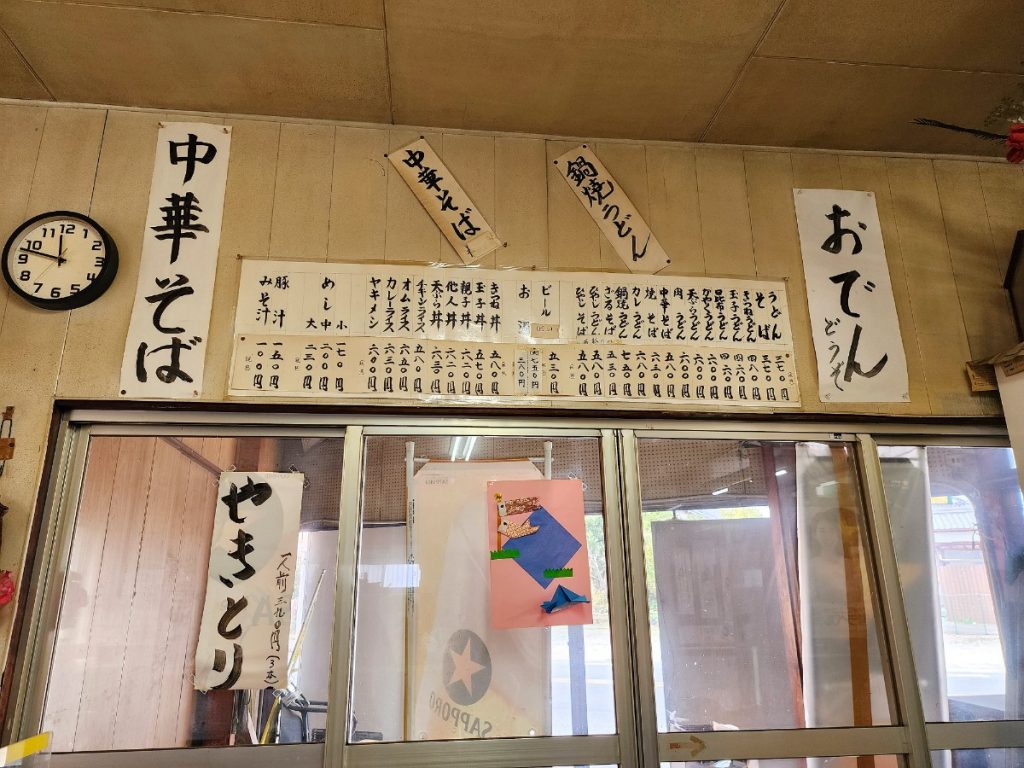 中華そば
中華そば
鍋焼うどん
おでん
どうぞ
うどん 三七〇円
そば 三七〇円
きつねうどん 四八〇円
玉子うどん 四六〇円
昆布うどん 四六〇円
かやくうどん 六〇〇円
天ぷらうどん 六〇〇円
肉うどん 六〇〇円
中華そば 五五〇円
焼そば 六五〇円
カレーうどん 五八〇円
鍋焼うどん 七五〇円
ざるそば 五五〇円
ひやしうどん 五八〇円
ひやしそば 五八〇円
ビール
お酒
きつね丼 五八〇円
玉子丼 五七〇円
親子丼 六二〇円
他人丼 六二〇円
天ぷら丼 六三〇円
チキンライス 五八〇円
オムライス 六五〇円
カレーライス 六〇〇円
ヤキメシ 六〇〇円
めし 小 一七〇円
中 二〇〇円
大 二三〇円
豚汁 一五〇円
みそ汁 一〇〇円
やきとり
一人前 三九〇円(3本)
SAPPORO